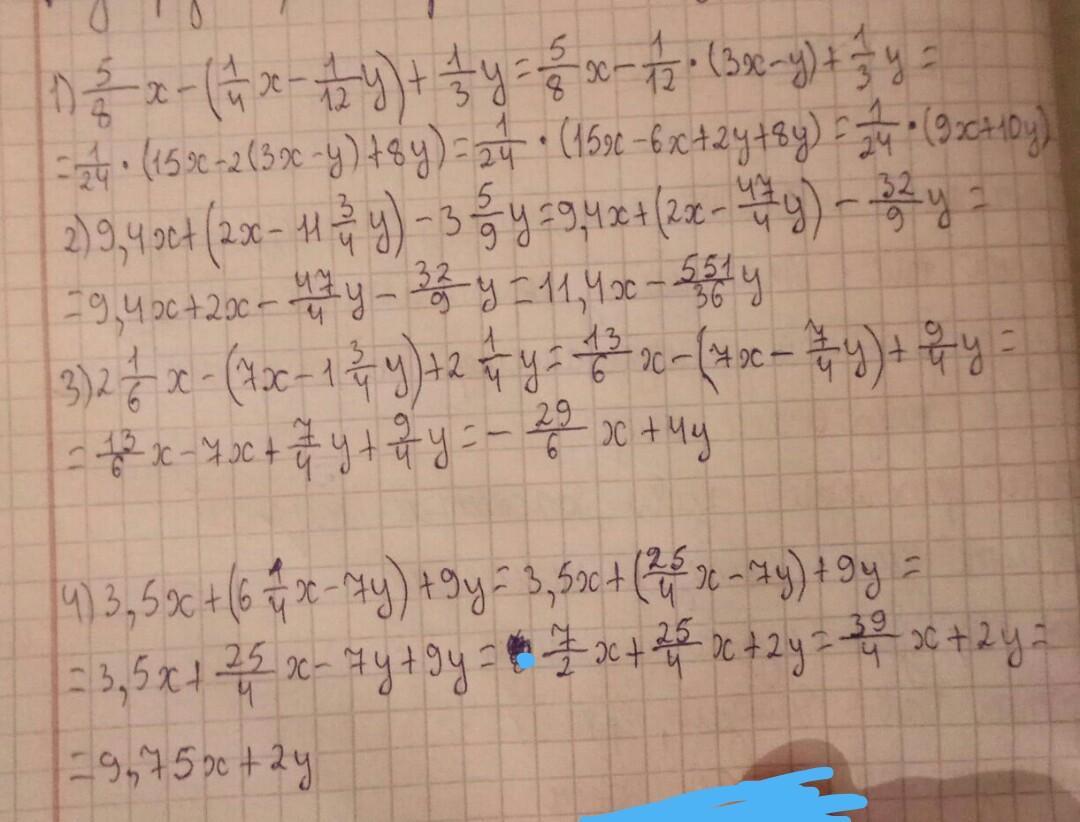 1) 5/8 x - (1/4 x - 1/12 y) + 1/3 y = 5/8 x - 1/12 · (3x - y) + 1/3 y =
= 1/24 · (15x - 2(3x - y) + 8y) = 1/24 · (15x - 6x + 2y + 8y) = 1/24 · (9x + 10y)
2) 9,4x + (2x - 11 3/4 y) - 3 5/9 y = 9,4x + (2x - 47/4 y) - 32/9 y =
= 9,4x + 2x - 47/4 y - 32/9 y = 11,4x - 551/36 y
3) 2 1/6 x - (7x - 1 3/4 y) + 2 1/4 y = 13/6 x - (7x - 7/4 y) + 9/4 y =
= 13/6 x - 7x + 7/4 y + 9/4 y = - 29/6 x + 4y
4) 3,5x + (6 1/4 x - 7y) + 9y = 3,5x + (25/4 x - 7y) + 9y =
= 3,5x + 25/4 x - 7y + 9y = 7/2 x + 25/4 x + 2y = 39/4 x + 2y =
= 9,75x + 2y